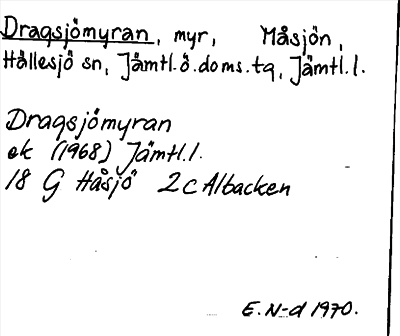 Dragsjömyran, myr, Måsjön,
Hällesjö sn, Jämtl.ö.doms.tg, Jämtl.l.
Dragsjömyran
ek (1968) Jämtl.l.
18 G Håsjö 2c Albacken
E. N-d 1970.